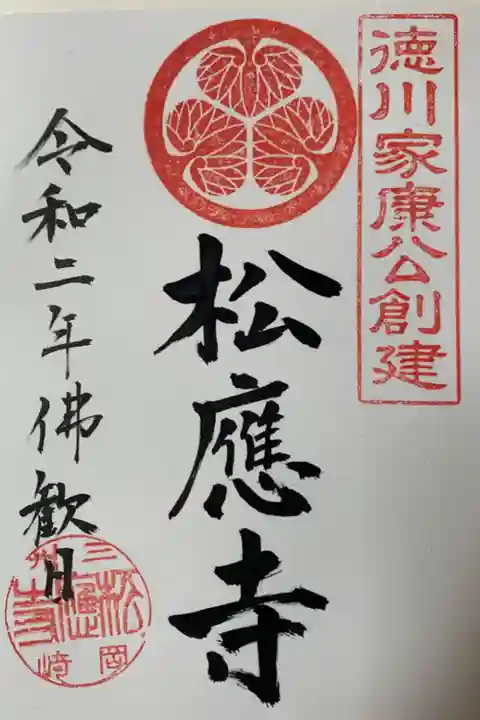 徳川家康公創建
松應寺
令和二年佛歓日
三州
岡崎
松應寺